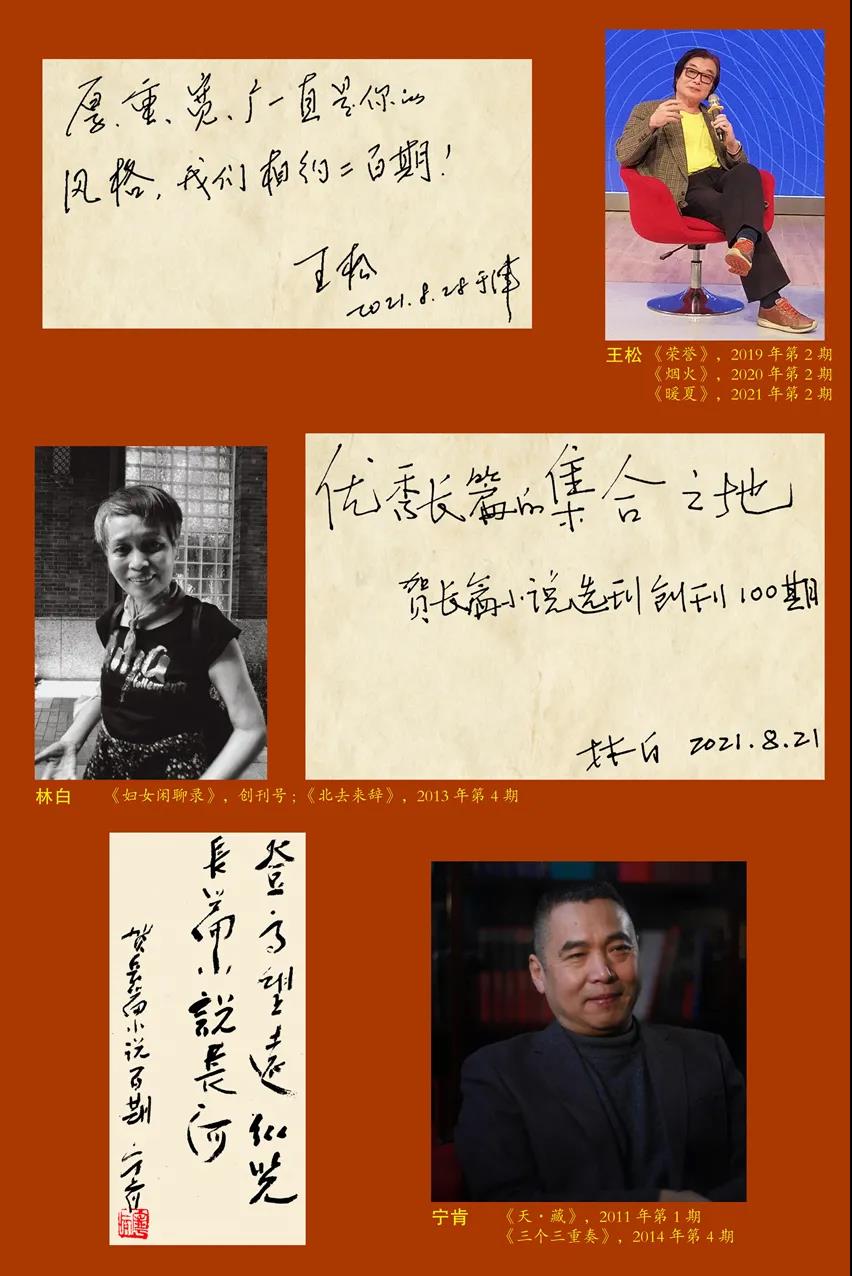 厚、重、宽、广一直是你的
风格，我们相约二百期！
王松
2021.8.28于津
王松 《荣誉》，2019 年第 2 期
《烟火》，2020 年第 2 期
《暖夏》，2021 年第 2 期
优秀长篇的集合之地
贺长篇小说选刊创刊100期
林白 2021.8.21
林白 《妇女闲聊录》，创刊号；《北去来辞》，2013 年第 4 期
登高望远纵览
長篇小説長河
贺长篇小说百期 宁肯
宁肯 《天·藏》，2011 年第 1 期
《三个三重奏》，2014 年第 4 期